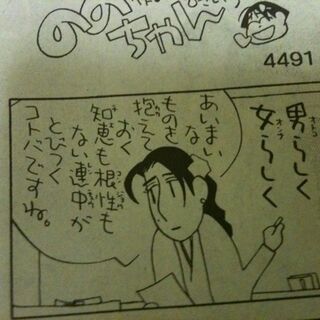 ののちゃん
4491
男らしく
女らしく
あいまい
な
ものを
抱えて
おく
知恵も根性も
ない連中が
とびつく
コトバですね。